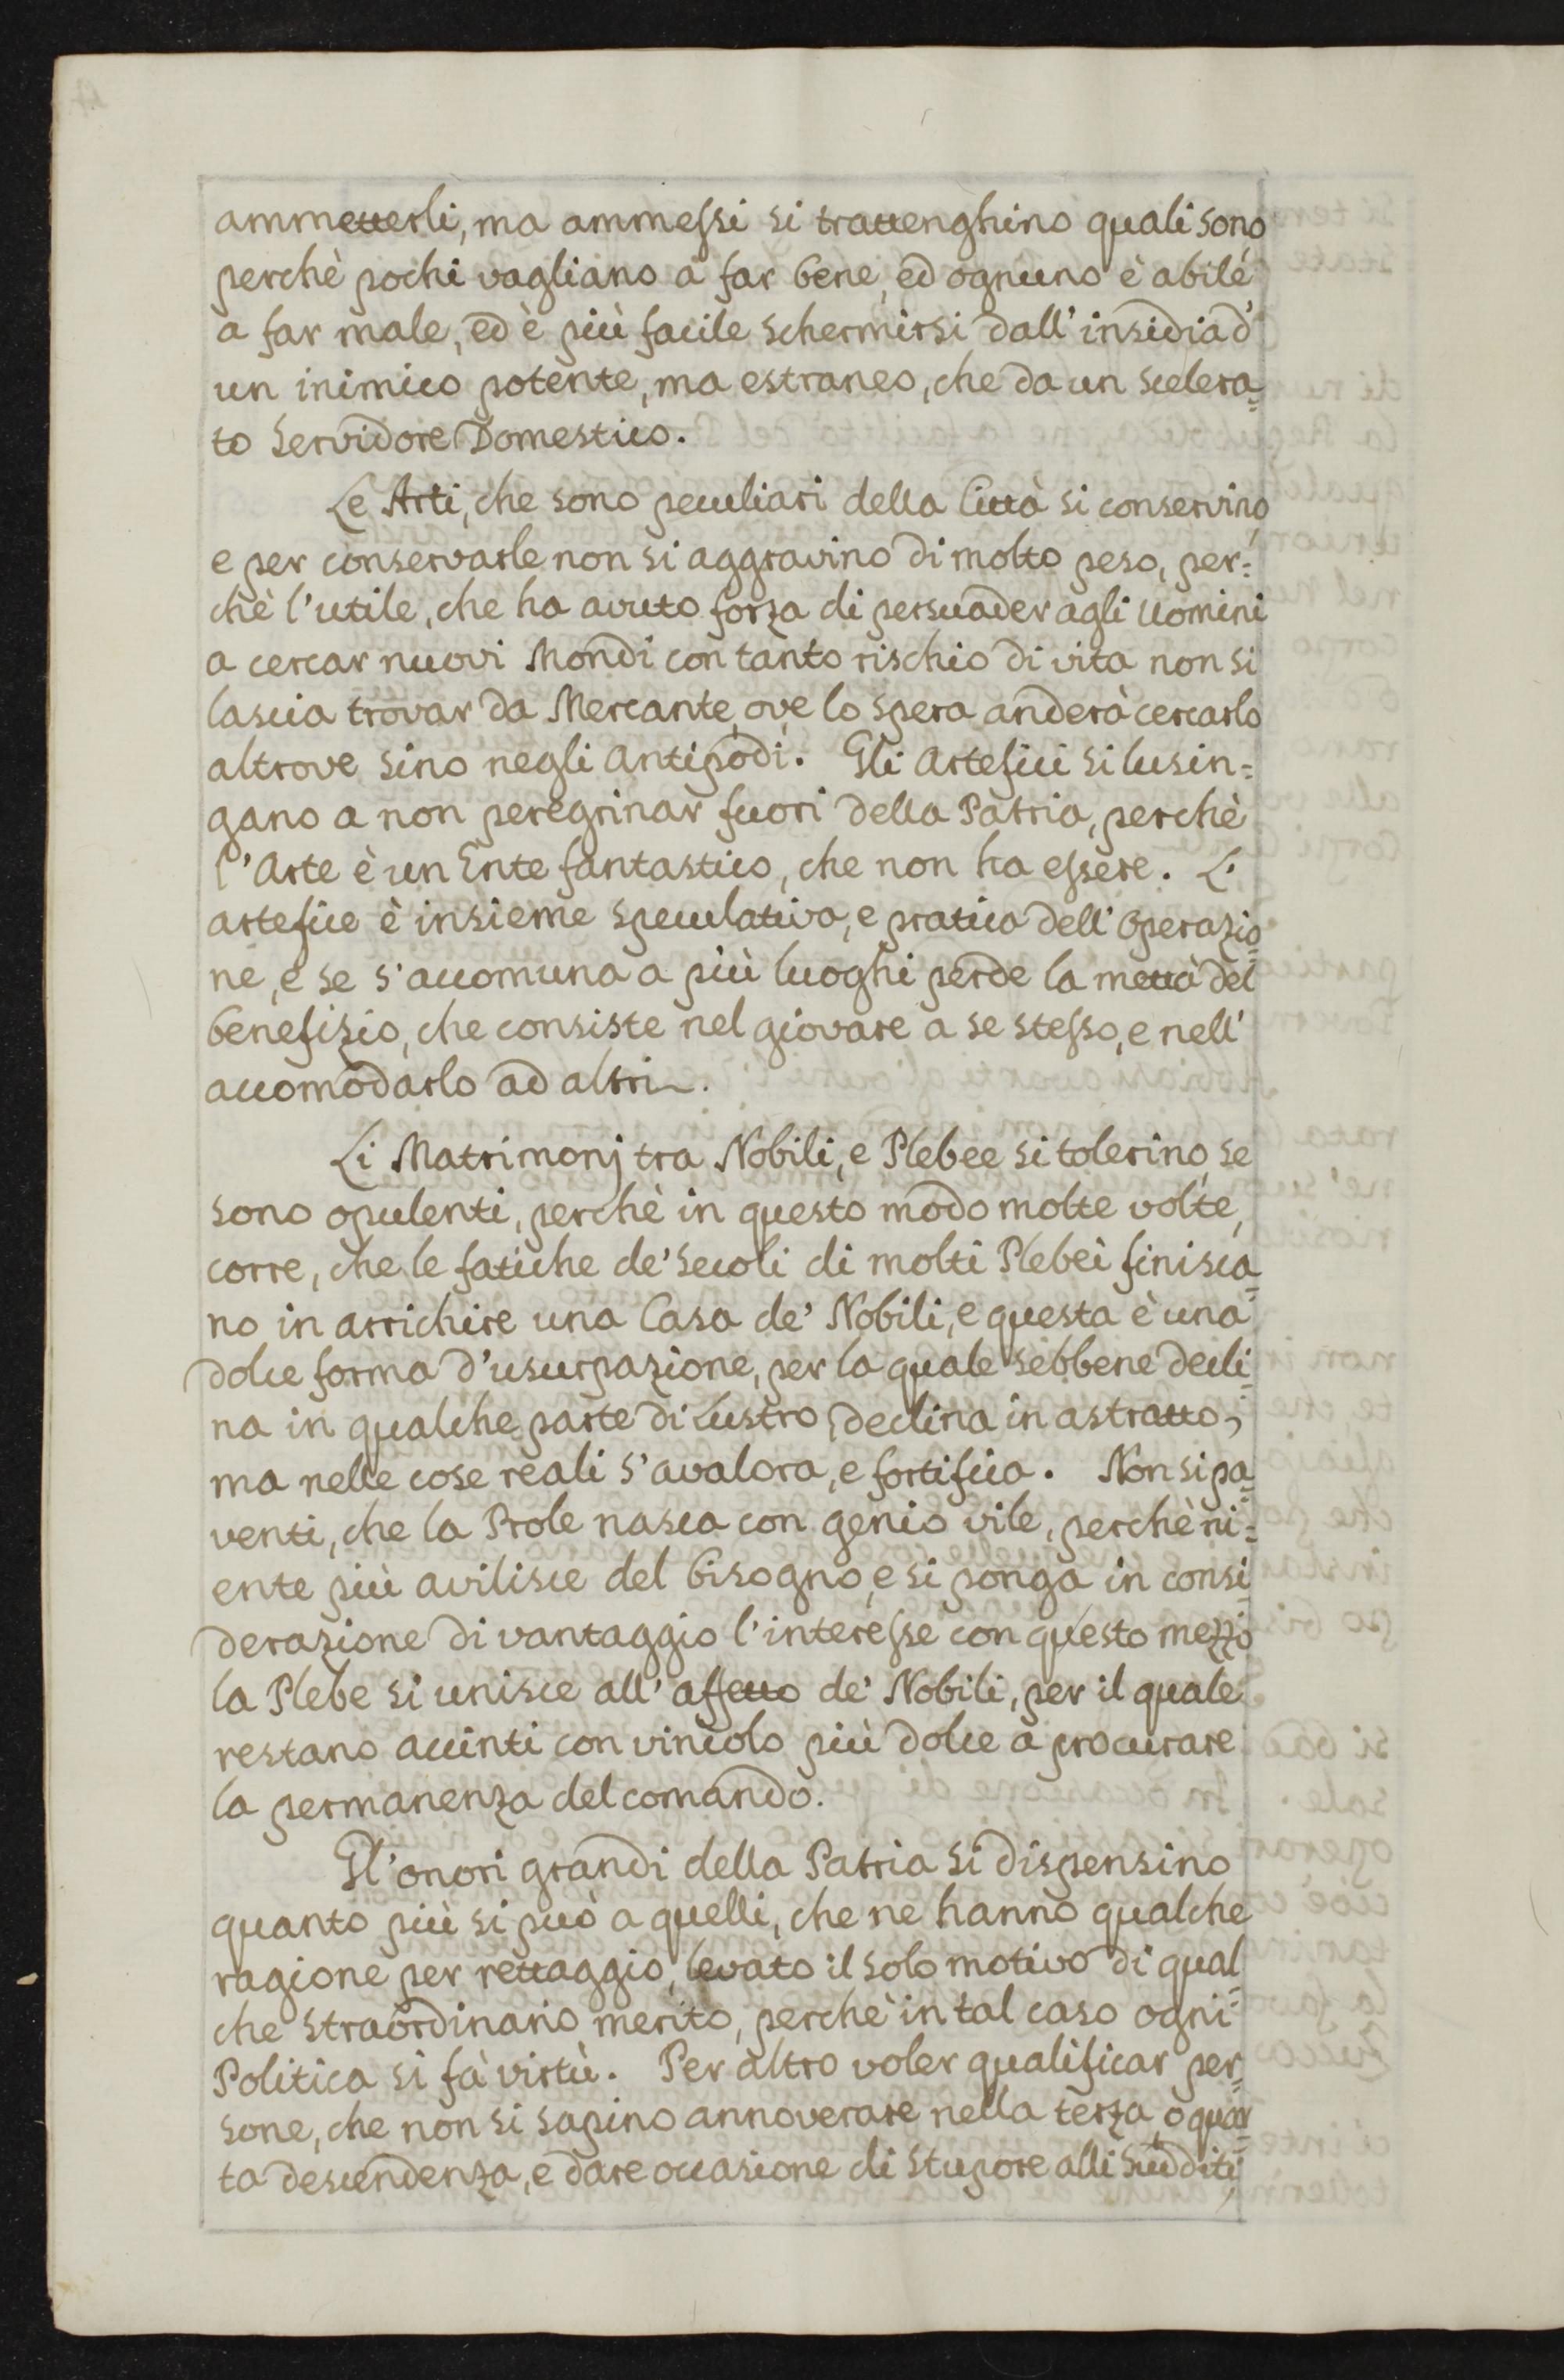 ammetterli, ma ammessi si trattenghino quali sono
perchè pochi vagliano a far bene, ed ognuno è abile
a far male, ed è più facile schermirsi dall' insidia d'
un inimico potente, ma estraneo, che da un scelera=
to Servidore Domestico.
Le Arti, che sono peculiari della Città si conservino,
e per conservarle non si aggravino di molto peso, per=
chè l'utile, che ha avuto forza di persuader agli Uomini
a cercar nuovi Mondi con tanto rischio di vita non si
lascia trovar da Mercante, ove lo spera anderà cercarlo
altrove sino negli Antipodi. Gli Artefici si lusin=
gano a non peregrinar fuori della Patria, perchè
l'Arte è un Ente fantastico, che non ha essere. L'
artefice è insieme speculativa, e pratica dell' Operazio=
ne, e se s'accomuna a più luoghi perde la mettà del
benefizio, che consiste nel giovare a se stesso, e nell'
accomodarlo ad altri.
Li Matrimonj tra Nobili, e Plebee si tolerino, se
sono opulenti, perchè in questo modo molte volte,
corre, che le fatiche de' Secoli di molti Plebei finisca=
no in arrichire una Casa de' Nobili, e questa è una
dolce forma d'usurpazione, per la quale sebbene decli=
na in qualche parte di Lustro, declina in astratto,
ma nelle cose reali s'avalora, e fortifica. Non si pa=
venti, che la Prole nasca con genio vile, perchè ni=
ente più avilisce del bisogno, e si ponga in consi=
derazione di vantaggio l'interesse con questo mezzo
la Plebe si unisce all' affetto de' Nobili, per il quale
restano accinti con vincolo più dolce a procurare
la permanenza del comando.
Gl'onori grandi della Patria si dispensino
quanto più si può a quelli, che ne hanno qualche
ragione per rettaggio, levato il solo motivo di qual=
che straordinario merito, perchè in tal caso ogni
Politica si fà virtù. Per altro voler qualificar per=
sone, che non si sapino annoverare nella terza, o quar=
ta descendenza, e dare occasione di stupore alli Sudditi,